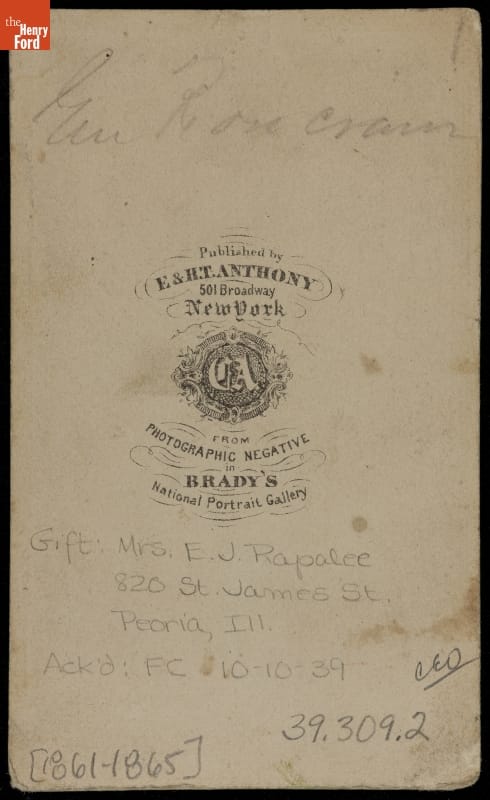 the
Henry
Ford
Gen Rosecrans
Published by
E & H.T. ANTHONY
501 Broadway
New York
FROM
PHOTOGRAPHIC NEGATIVE
in
BRADY'S
National Portrait Gallery
Gift: Mrs. E. J. Rapalee
820 St. James St.
Peoria, Ill.
Ack'd: FC 10-10-39
39.309.2
[1861-1865]